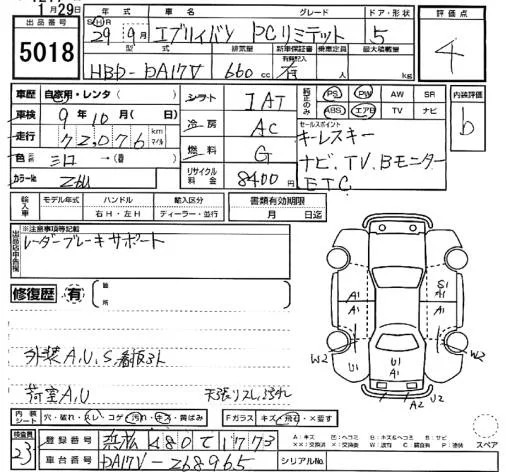 月29日
出品番号 年式 車名 グレード ドア・形状 評価点
5018
SH 29年 9月 エブリイバン PCリミテッド 5 4
型式 排気量 新車保証書 乗車定員 最大積載量
HBD-DA17V 660cc 有 人 kg
車歴 自家用・レンタ シフト IAT 純正のみ PS PW AW SR 内装評価
車検 9年10月 日 冷房 AC ABS エアB TV ナビ b
走行 72,076 km マイル 燃料 G セールスポイント
キーレスキー
色 シロ リサイクル料金 8400円 ナビ、TV、Bモニター
カラーNo. Z6U ETC
輸入車 モデル年式 ハンドル 輸入区分 書類有効期限
右H・左H ディーラー・並行 月 日迄
※注意事項等記載
レーダーブレーキサポート
修復歴 有 箇所
外装A、U、S、看板コン
荷室A、U 天張リスレ、汚れ
A1 S1 A1
A1 A1
W2 U1 A1 W2
A1 U2
A2
内装シート 穴・破れ・スレ・コゲ・汚れ・キズ・黄ばみ Fガラス キズ・飛石・×要す
検査員 23 登録番号 浜松 480 て 1773 スペア
車台番号 DA17V-268965 シリアルNo.